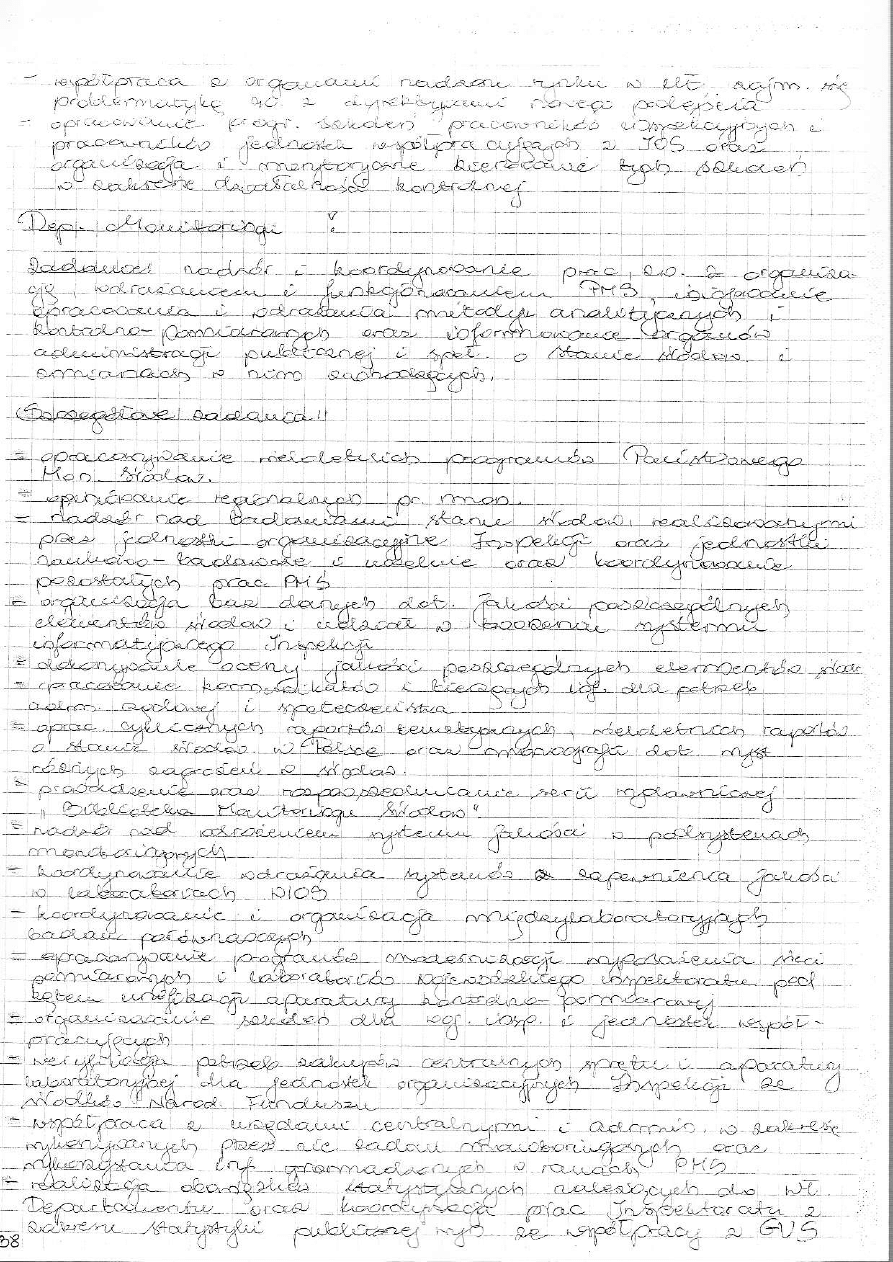 - współpraca z organami nadzoru rynku w UE, zajm. się
problematyką zw. z dyrektywami nowego podejścia
- opracowanie progr. szkoleń pracowników inspekcyjnych i
pracowników jednostek współpracujących z IOŚ oraz
organizacja i merytoryczne kierowanie tych szkoleń
w zakresie działalności kontrolnej
Dep. Monitoringu !
Zadania: nadzór i koordynowanie prac, zw. z organiza-
cją, wdrażaniem i funkcjonowaniem PMŚ,
opracowania i wdrażania metodyk analitycznych i
kontrolno-pomiarowych oraz informowanie organów
administracji publicznej i społ. o stanie środow. i
zmianach w nim zachodzących.
(Szczegółowe zadania!!
- opracowywanie wieloletnich programów Państwowego
Mon. Środow.
- opiniowanie regionalnych pr. mon.
- nadzór nad badaniami stanu środow. realizowanymi
przez jednostki organizacyjne Inspekcji oraz jednostki
naukowo-badawcze i uczelnie oraz koordynowanie
pozostałych prac PMŚ
- organizacja baz danych dot. jakości poszczególnych
elementów środow i udział w tworzeniu systemu
informatycznego Inspekcji
- dokonywanie oceny jakości poszczególnych elementów środ
- opracowanie komunikatów i bieżących inf. dla potrzeb
adm. rządowej i społeczeństwa
- oprac. cyklicznych raportów tematycznych, wieloletnich raportów
o stanie środow. w Polsce oraz monografii dot. wyst
różnych zagrożeń w środow.
- prowadzenie oraz rozpowszechnianie serii wydawniczej
"Biblioteka Monitoringu Środow".
- nadzór nad wdrożeniem systemu jakości w podsystemach
monitoringowych
- koordynowanie wdrażania systemów zapewnienia jakości
w laboratoriach WIOŚ
- koordynowanie i organizacja międzylaboratoryjnych
badań porównawczych
- opracowywanie programów modernizacji wyposażenia sieci
pomiarowych i laboratoriów wojewódzkiego inspektoratu pod
kątem unifikacji aparatury kontrolno-pomiarowej
- organizowanie szkoleń dla woj. insp. i jednostek współ-
pracujących
- weryfikacja potrzeb zakupów centralnych sprzętu i aparatury
laboratoryjnej dla jednostek organizacyjnych Inspekcji ze
środków Narod. Funduszu
- współpraca z urzędami centralnymi i adminis. w zakresie
wykonywanych przez nie zadań monitoringowych oraz
wykorzystania inf. gromadzonych w ramach PMŚ
- realizacja obowiązków statystycznych należących do wł.
Departamentu oraz koordynacja prac Inspektoratu z
zakresu statystyki publicznej ze współpracy z GUS
38